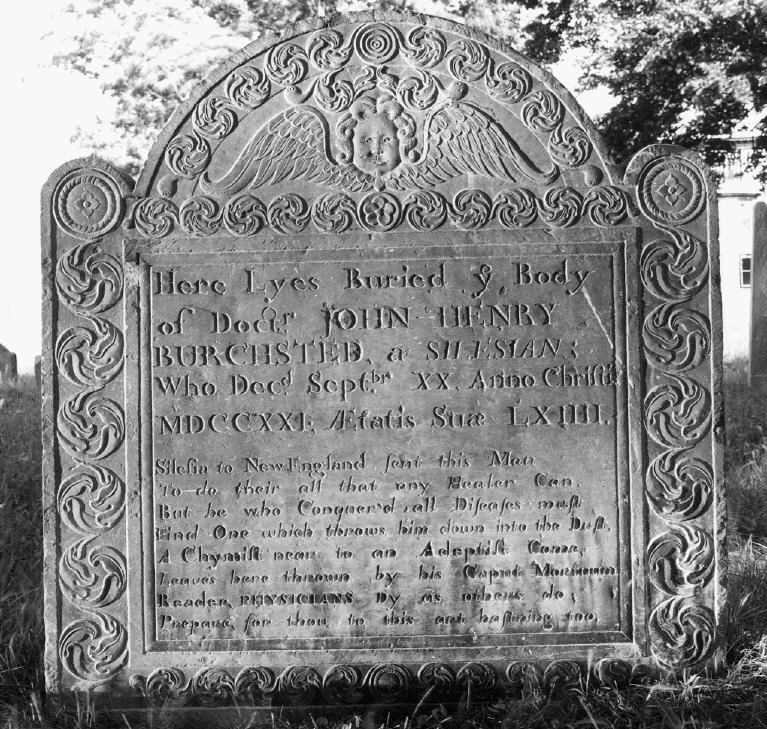 Here Lyes Buried yͤ Body
of Docᵗʳ JOHN HENRY
BURCHSTED, a SILESIAN;
Who Decᵈ Septᵇʳ XX. Anno Christi
MDCCXXI, Ætatis Suæ LXIIII.
Sileſia to New England ſent this Man
To do their all that any Healer Can
But he who Conquer'd all Diſeaſes muſt
Find One which throws him down into the Duſt,
A Chymiſt near to an Adeptiſt Come,
Leaves here thrown by his Caput Mortuum
Reader, PHYSICIANS Dy as others do;
Prepare, for thou to this art haſtning too,